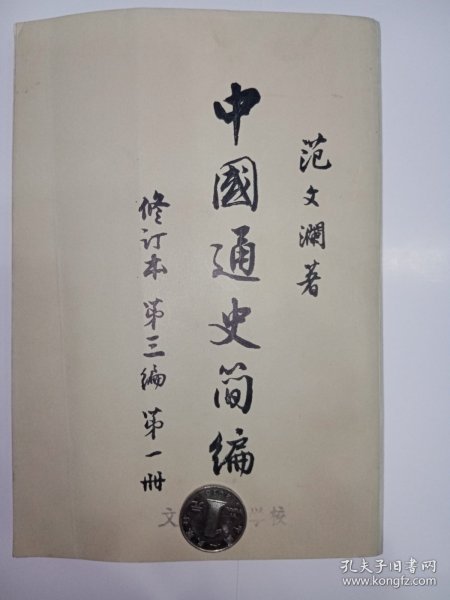 范文瀾著
中國通史简编
修订本 第三编 第一册
文
学校
孔夫子旧书网
www.kongfz.com